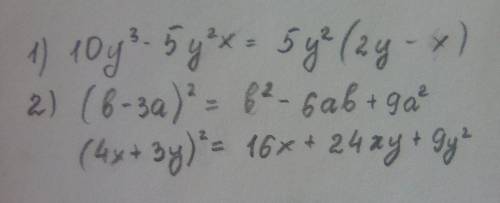 1) 10y³ - 5y²x = 5y²(2y - x)
2) (в - 3а)² = в² - 6ав + 9а²
(4x + 3y)² = 16x + 24xy + 9y²